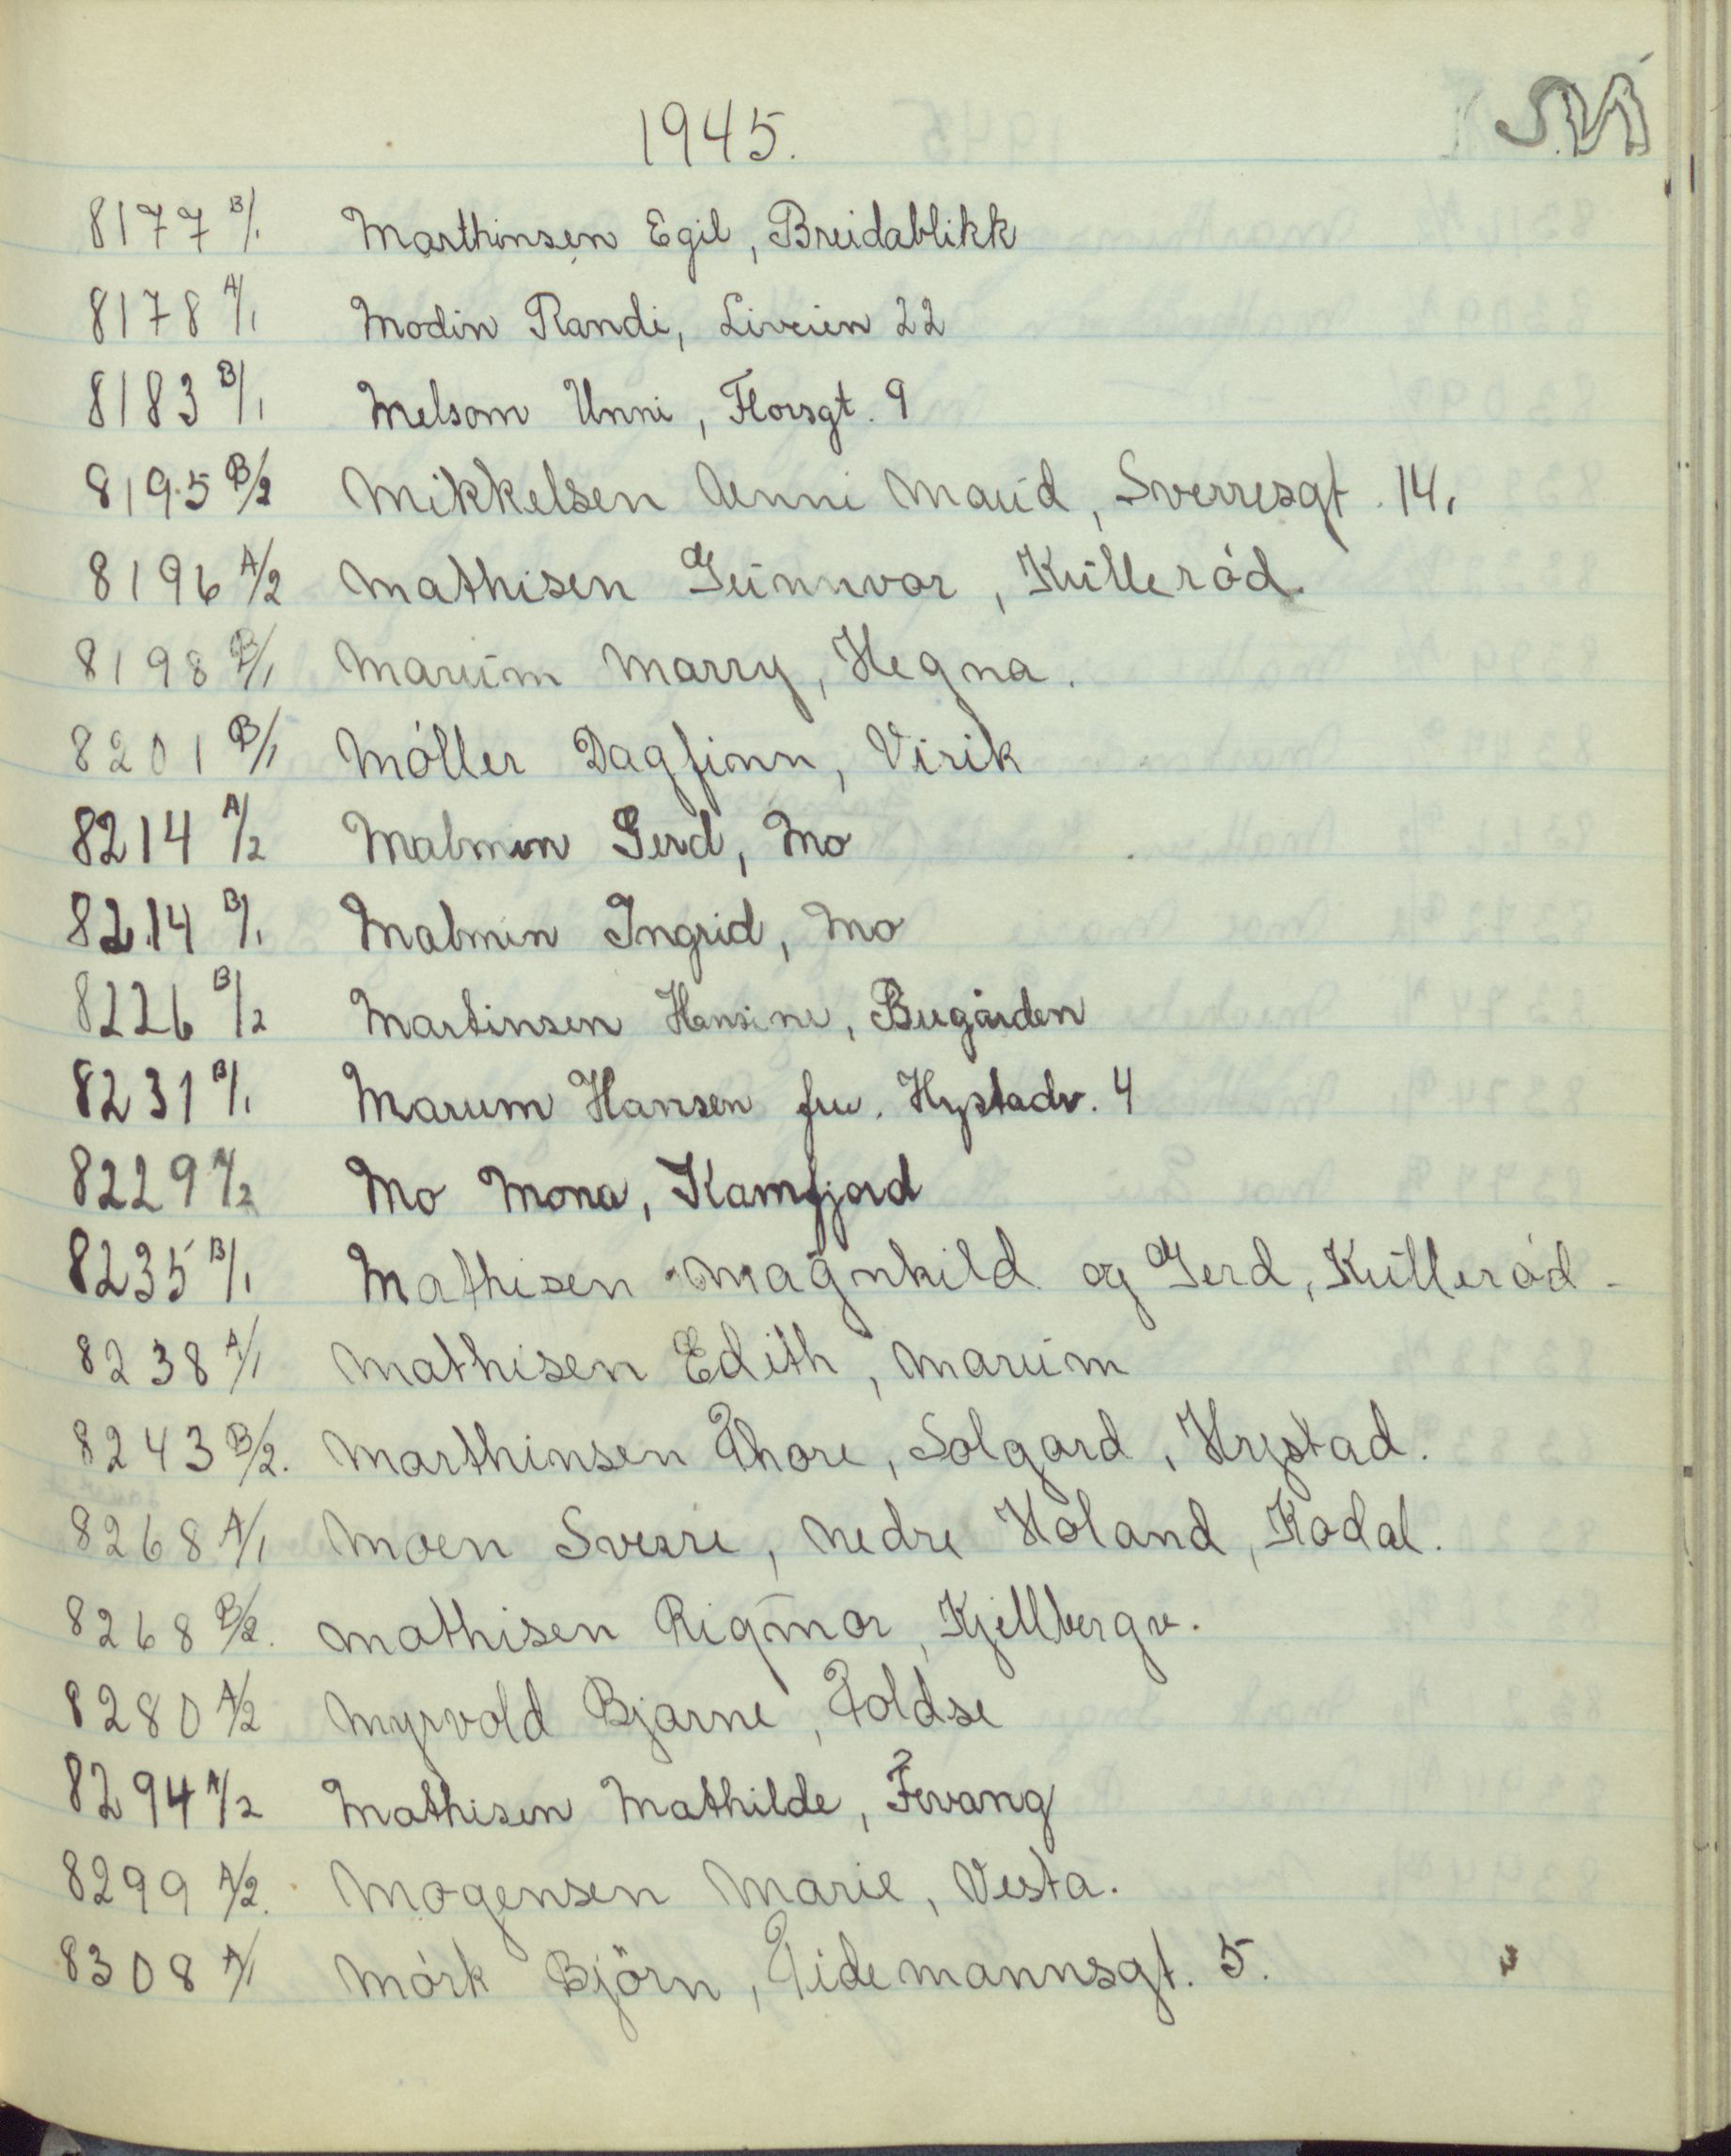 1945.
M
8177 B/1 Marthinsen Egil, Breidablikk
8178 A/1 Modin Randi, Liveien 22
8183 B/1 Melsom Unni, Florsgt. 9
8195 B/2 Mikkelsen Aenni Maud, Sverresgt. 14.
8196 A/2 Mathisen Gunnvor, Kulleród.
8198 B/1 Marum Marry, Hegna.
8201 B/1 Móller Dagfinn, Virik
8214 A/2 Malmin Gerd, Mo
8214 B/1 Malmin Ingrid, Mo
8226 B/2 Martinsen Hansine, Bugården
8231 B/1 Marum Hansen fru. Hystadv. 4
8229 A/2 Mo Mona, Kamfjord
8235 B/1 Mathisen Magnhild og Gerd, Kulleród -
8238 A/1 Mathisen Edith, Marum
8243 B/2. Marthinsen Thore, Solgard, Hystad.
8268 A/1 Moen Sverre, Nedre Holand, Kodal.
8268 B/2. Mathisen Rigmor, Kjellbergv.
8280 A/2 Myrvold Bjarne, Toldse
8294 A/2 Mathisen Mathilde, Fevang
8299 A/2. Mogensen Marie, Vesta.
8308 A/1 Mórk Björn, Tidemannsgt. 5.